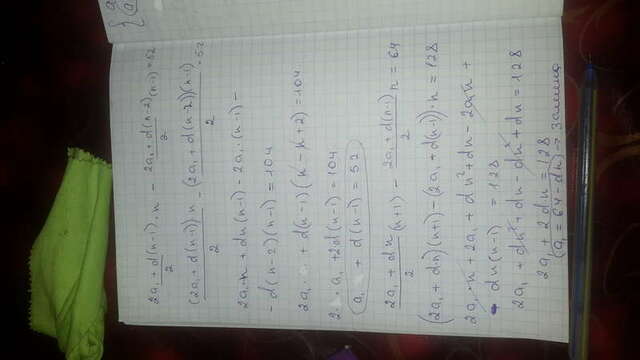 2a₁ + d(n-1)/2 · n - 2a₁ + d(n-2)/2 (n-1) = 52
(2a₁ + d(n-1))n/2 - (2a₁ + d(n-2))(n-1)/2 = 52
2a₁·n + dn(n-1) - 2a₁·(n-1) -
- d(n-2)(n-1) = 104
2a₁ + d(n-1)(n-n+2) = 104
2a₁ + 2d(n-1) = 104
a₁ + d(n-1) = 52
2a₁ + dn/2 (n+1) - 2a₁ + d(n-1)/2 n = 64
(2a₁ + dn)(n+1) - (2a₁ + d(n-1))·n = 128
2a₁·n + 2a₁ + dn² + dn - 2a₁n +
- dn(n-1) = 128
2a₁ + dn² + dn - dn² + dn = 128
2a₁ + 2dn = 128
(a₁ = 64 - dn) →